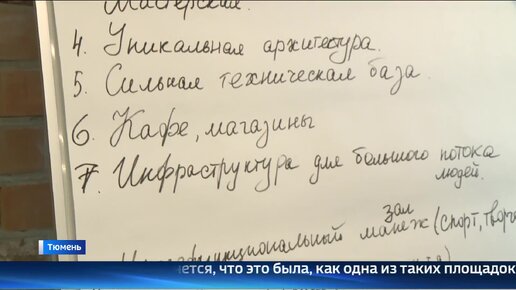 Мастерские.
4. Уникальная архитектура.
5. Сильная техническая база.
6. Кафе, магазины
7. Инфраструктура для большого потока
людей.
зал
манеж (спорт,
Тюмень
что это была, как одна из таких площадок